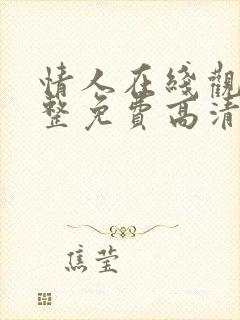 情人在綫觀
整免費高清
焦莹